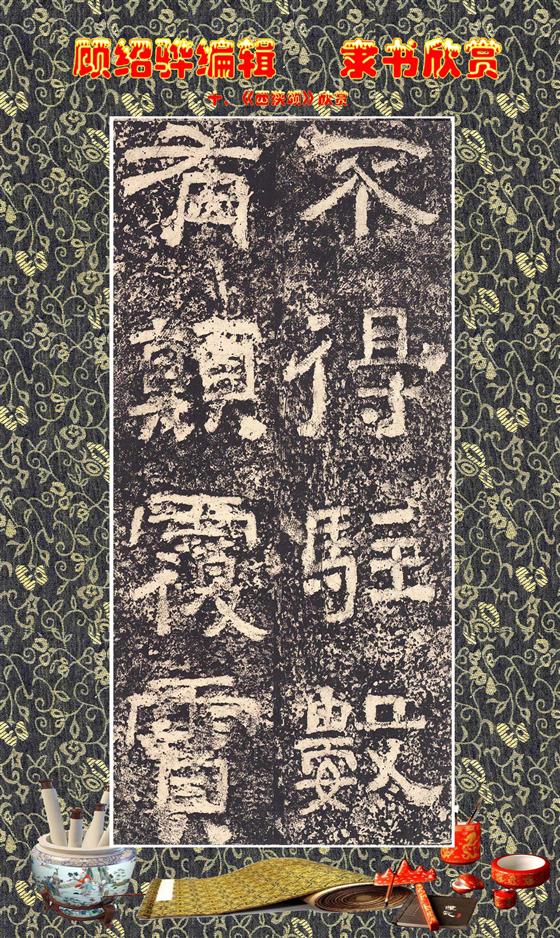 顾绍骅编辑 隶书欣赏
十、《西狭颂》欣赏
不得駐數
有顛覆賈